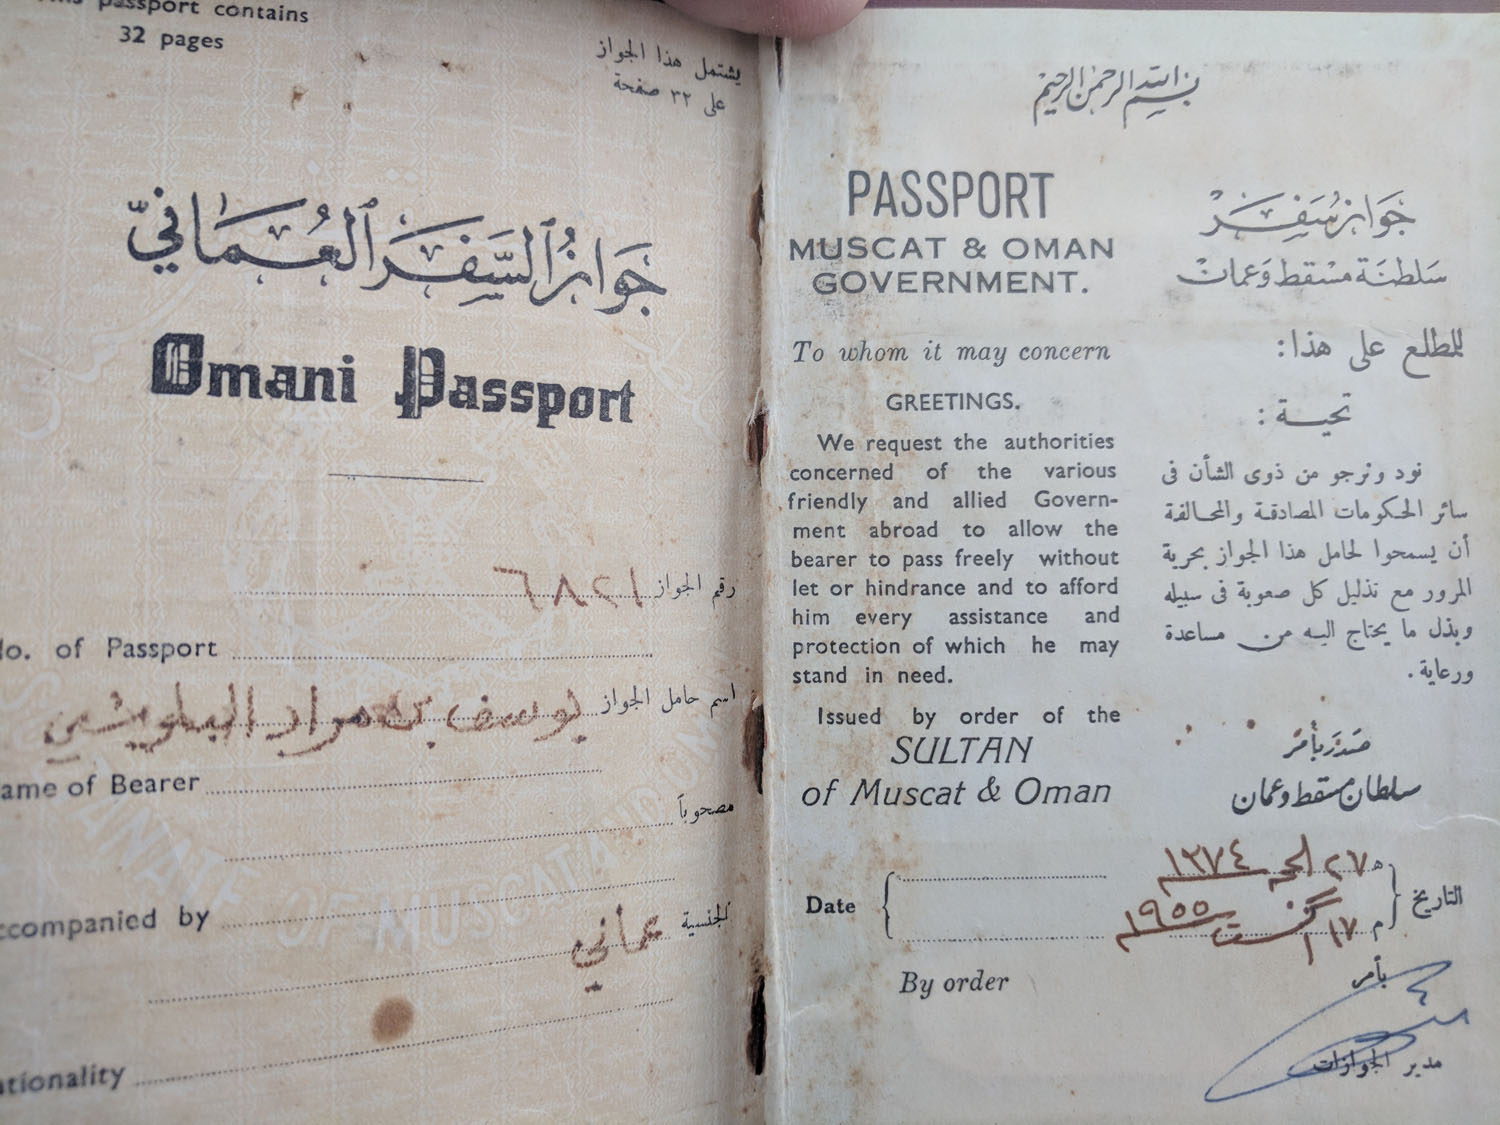 passport contains
32 pages
يشتمل هذا الجواز
على ٣٢ صفحة
جَوَازُ السَّفَرِ العُمَانيّ
Omani Passport
رقم الجواز ١٢٨٦
No. of Passport
اسم حامل الجواز يوسف بن مراد البلوشي
Name of Bearer
مصحوباً
Accompanied by
الجنسية عماني
Nationality
SULTANATE OF MUSCAT AND OMAN
بسم الله الرحمن الرحيم
PASSPORT
MUSCAT & OMAN
GOVERNMENT.
To whom it may concern
GREETINGS.
We request the authorities
concerned of the various
friendly and allied Govern-
ment abroad to allow the
bearer to pass freely without
let or hindrance and to afford
him every assistance and
protection of which he may
stand in need.
Issued by order of the
SULTAN
of Muscat & Oman
جَوَازُ سَفَرْ
سَلطنَة مسْقط وَعمان
للمطلع على هذا:
تحية:
نود ونرجو من ذوى الشأن فى
سائر الحكومات المصادقة والمحالفة
أن يسمحوا لحامل هذا الجواز بحرية
المرور مع تذليل كل صعوبة فى سبيله
وبذل ما يحتاج اليه من مساعدة
ورعاية.
صَدَرَ بأمْر
سلطان مسقط وعمان
Date
التاريخ
٢٧ الحج ١٣٧٤ هـ
١٧ اگست ١٩٥٥ م
By order
بأمر
مدير الجوازات